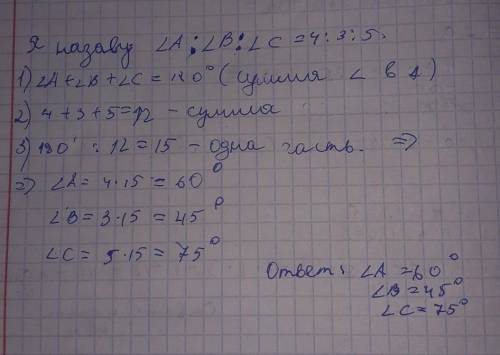 Я назаву ∠A:∠B:∠C=4:3:5.
1) ∠A+∠B+∠C=180° (сумма ∠ в Δ)
2) 4+3+5=12 - сумма
3) 180° : 12=15 - одна часть. ⇒
⇒ ∠A= 4·15 = 60°
∠B= 3·15 = 45°
∠C= 5·15 = 75°
Ответ: ∠A =60°
∠B=45°
∠C=75°